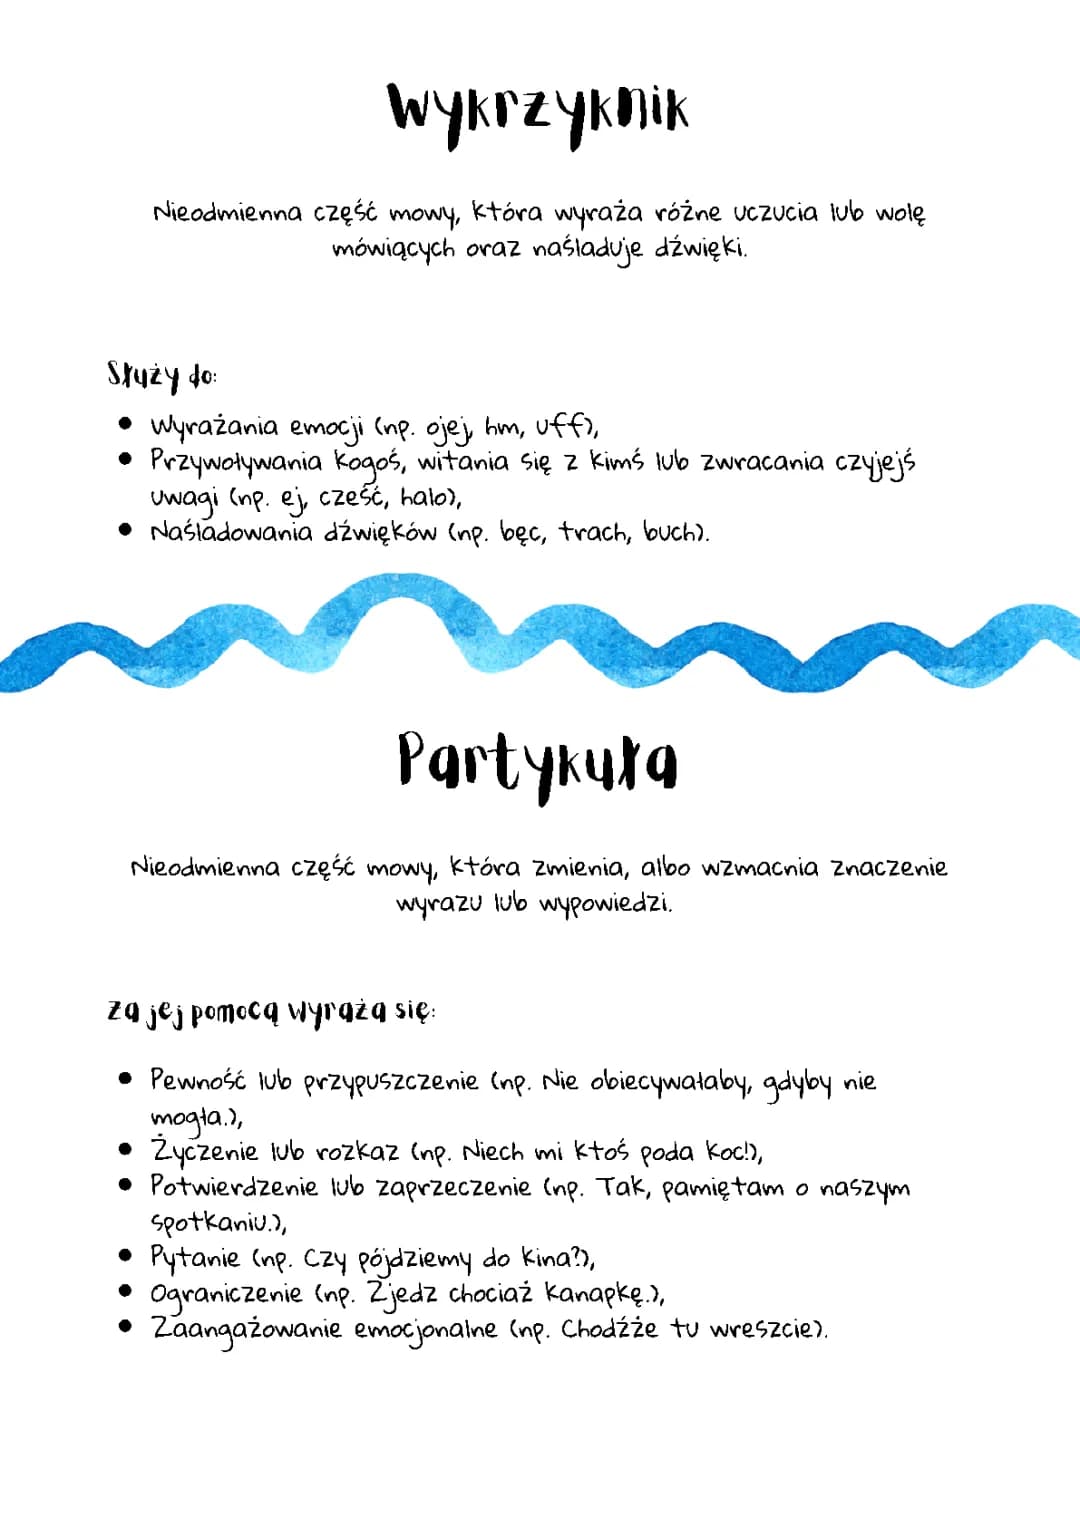 Wykrzyknik
Nieodmienna część mowy, która wyraża różne uczucia lub wolę
mówiących oraz naśladuje dźwięki.
Służy do:
• Wyrażania emocji (np. ojej, hm, uff),
• Przywoływania kogoś, witania się z kimś lub zwracania czyjejś
uwagi (np. ej, cześć, halo),
• Naśladowania dźwięków (np. bęc, trach, buch).
Partykuła
Nieodmienna część mowy, która zmienia, albo wzmacnia znaczenie
wyrazu lub wypowiedzi.
Za jej pomocą wyraża się:
• Pewność lub przypuszczenie (np. Nie obiecywałaby, gdyby nie
mogła.),
• Życzenie lub rozkaz (np. Niech mi ktoś poda koc!),
• Potwierdzenie lub zaprzeczenie (np. Tak, pamiętam o naszym
spotkaniu.),
• Pytanie (np. Czy pójdziemy do kina?),
• Ograniczenie (np. Zjedz chociaż kanapkę.),
• Zaangażowanie emocjonalne (np. Chodźże tu wreszcie).